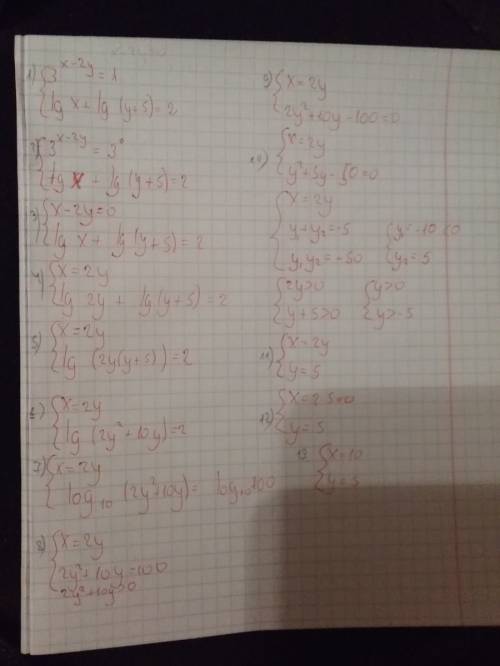 1) { 3^(x-2y) = 1
{ lg x + lg (y+5) = 2
2) { 3^(x-2y) = 3^0
{ lg x + lg (y+5) = 2
3) { x-2y=0
{ lg x + lg (y+5) = 2
4) { x = 2y
{ lg 2y + lg (y+5) = 2
5) { x = 2y
{ lg (2y(y+5)) = 2
6) { x = 2y
{ lg (2y² + 10y) = 2
7) { x = 2y
{ log₁₀ (2y²+10y) = log₁₀ 100
8) { x = 2y
{ 2y² + 10y = 100
2y² + 10y > 0
9) { x = 2y
{ 2y² + 10y - 100 = 0
10) { x = 2y
{ y² + 5y - 50 = 0
{ x = 2y
{ y₁ + y₂ = -5 { y₁ = -10 < 0
{ y₁ y₂ = -50 { y₂ = 5
{ 2y > 0 { y > 0
{ y + 5 > 0 { y > -5
11) { x = 2y
{ y = 5
12) { x = 2·5
{ y = 5
13 { x = 10
{ y = 5